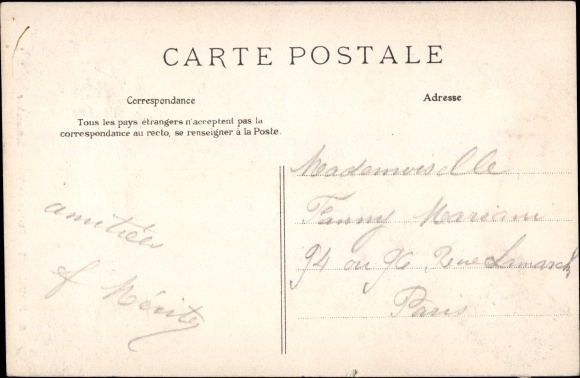 CARTE POSTALE
Correspondance
Tous les pays étrangers n'acceptent pas la
correspondance au recto, se renseigner à la Poste.
Adresse
amitiées
Mademoiselle
Fanny Mariani
94 ou 96 Rue Lamarck
Paris